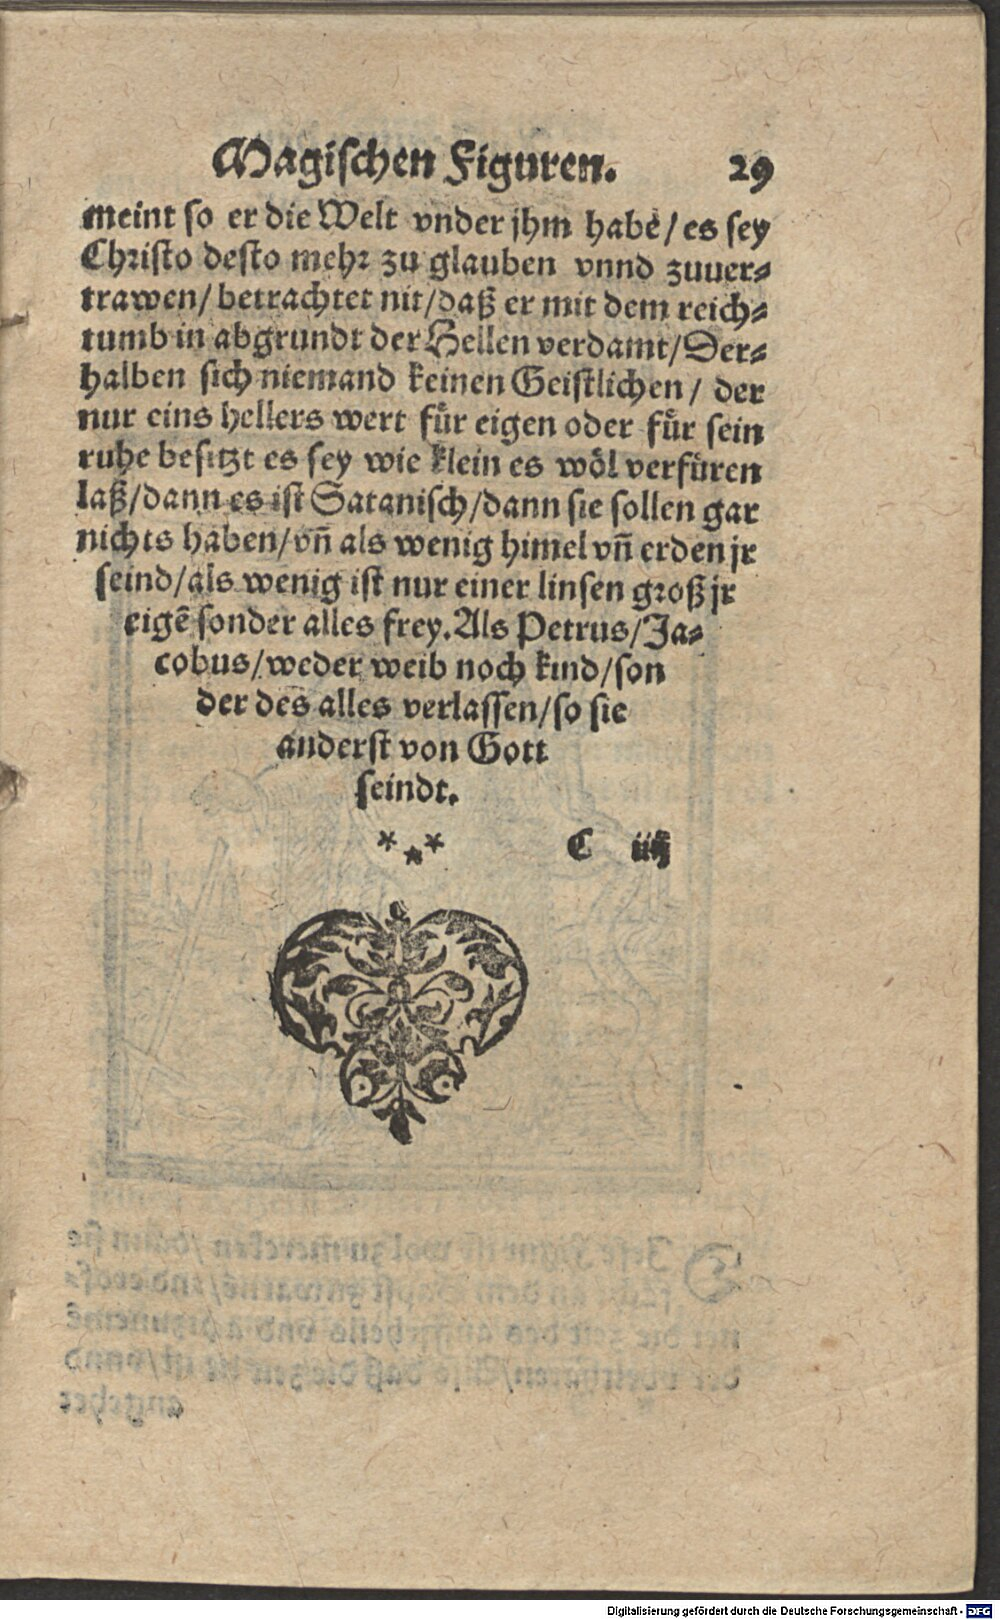 Magischen Figuren. 29
meint so er die Welt vnder jhm habe/ es sey
Christo desto mehr zu glauben vnnd zuuer-
trawen/ betrachtet nit/daß er mit dem reich-
tumb in abgrundt der Hellen verdamt/Der-
halben sich niemand keinen Geistlichen/ der
nur eins hellers wert fuͤr eigen oder fuͤr sein
ruhe besitzt es sey wie klein es woͤl verfuͤren
laß/dann es ist Satanisch/dann sie sollen gar
nichts haben/vñ als wenig himel vñ erden jr
seind/als wenig ist nur einer linsen groß jr
eigẽ sonder alles frey. Als Petrus/Ja-
cobus/weder weib noch kind/son
der des alles verlassen/so sie
anderst von Gott
seindt.
* * *
C iiij
Digitalisierung gefördert durch die Deutsche Forschungsgemeinschaft - DFG